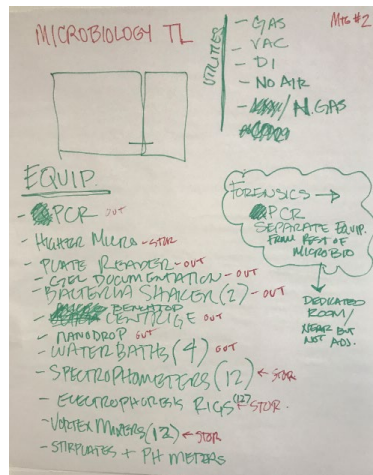 MICROBIOLOGY TL
MTG #2
UTILITIES
- GAS
- VAC
- DI
- NO AIR
- / N. GAS
EQUIP.
- PCR OUT
- HIGHER MICRO - STOR
- PLATE READER - OUT
- GEL DOCUMENTATION - OUT
- BACTERIA SHAKER (2) - OUT
- BENCHTOP
CENTRIFUGE OUT
- NANODROP OUT
- WATER BATHS (4) OUT
- SPECTROPHOMETERS (12) ← STOR
- ELECTROPHORESIS RIGS (12) ← STOR.
- VORTEX MIXERS (12) ← STOR
- STIRPLATES + PH METERS
FORENSICS →
PCR
SEPARATE EQUIP.
FROM REST OF
MICROBIO
DEDICATED
ROOM/
NEAR BUT
NOT ADJ.